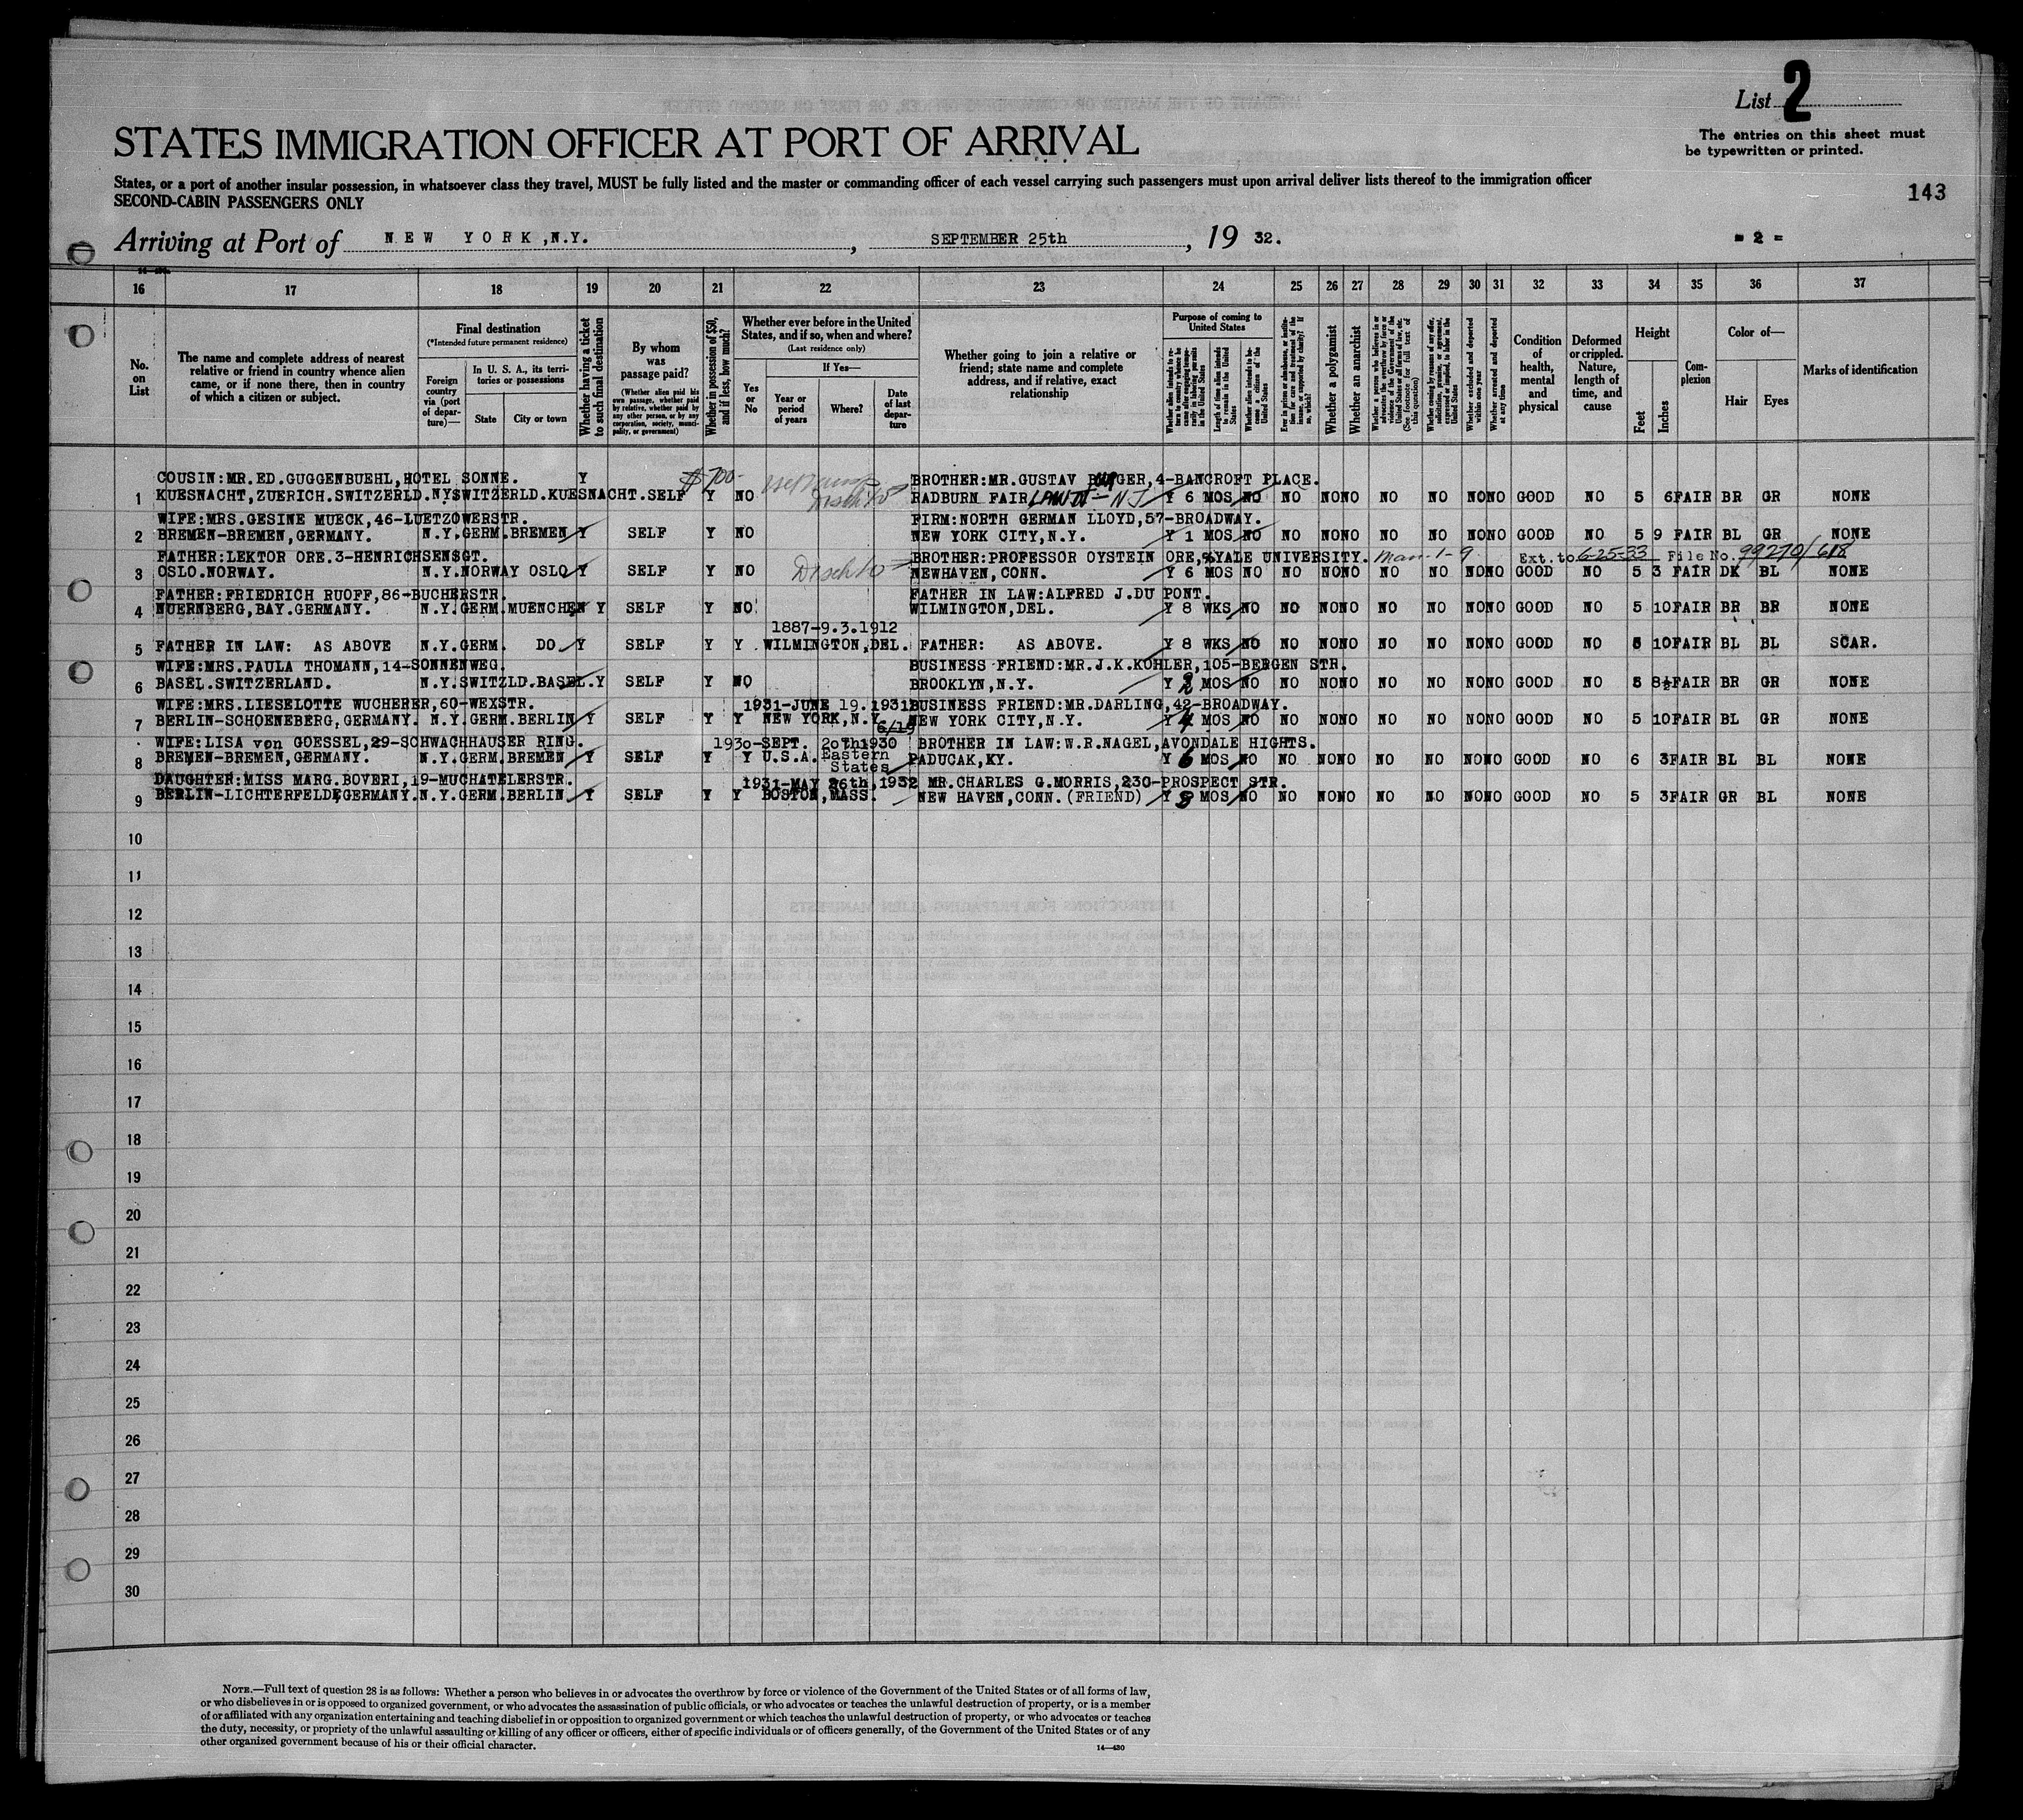 List 2
The entries on this sheet must
be typewritten or printed.
STATES IMMIGRATION OFFICER AT PORT OF ARRIVAL
States, or a port of another insular possession, in whatsoever class they travel, MUST be fully listed and the master or commanding officer of each vessel carrying such passengers must upon arrival deliver lists thereof to the immigration officer
SECOND-CABIN PASSENGERS ONLY
143
Arriving at Port of NEW YORK, N.Y. , SEPTEMBER 25th , 19 32.
= 2 =
16 17 18 19 20 21 22 23 24 25 26 27 28 29 30 31 32 33 34 35 36 37
No. on List
The name and complete address of nearest relative or friend in country whence alien came, or if none there, then in country of which a citizen or subject.
Final destination
(*Intended future permanent residence)
Foreign country via (port of departure)—
In U. S. A., its territories or possessions
State
City or town
Whether having a ticket to such final destination
By whom was passage paid?
(Whether alien paid his own passage, whether paid by relative, whether paid by any other person, or by any corporation, society, municipality, or government)
Whether in possession of $50, and if less, how much?
Whether ever before in the United States, and if so, when and where?
(Last residence only)
Yes or No
If Yes—
Year or period of years
Where?
Date of last departure
Whether going to join a relative or friend; state name and complete address, and if relative, exact relationship
Purpose of coming to United States
Length of time alien intends to remain in the United States
Whether alien intends to become a citizen of the United States
Whether a polygamist
Whether an anarchist
Whether excluded and deported within one year
Whether arrested and deported at any time
Condition of health, mental and physical
Deformed or crippled. Nature, length of time, and cause
Height
Feet
Inches
Complexion
Color of—
Hair
Eyes
Marks of identification
COUSIN:MR.ED.GUGGENBUEHL,HOTEL SONNE. Y $700- BROTHER:MR.GUSTAV 4-BANCROFT PLACE.
1 KUESNACHT,ZUERICH.SWITZERLD.NY SWITZERLD.KUESNACHT.SELF Y NO RADBURN FAIR LAWN - NJ Y 6 MOS NO NO NO NO NO NO NO NO GOOD NO 5 6 FAIR BR GR NONE
WIFE:MRS.GESINE MUECK,46-LUETZOWERSTR. FIRM:NORTH GERMAN LLOYD,57-BROADWAY.
2 BREMEN-BREMEN,GERMANY. N.Y.GERM.BREMEN Y SELF Y NO NEW YORK CITY,N.Y. Y 1 MOS NO NO NO NO NO NO NO NO GOOD NO 5 9 FAIR BL GR NONE
FATHER:LEKTOR ORE.3-HENRICHSENSGT. BROTHER:PROFESSOR OYSTEIN ORE,%YALE UNIVERSITY. Ext. to 6-25-33 File No. 99270/618
3 OSLO.NORWAY. N.Y.NORWAY OSLO Y SELF Y NO NEWHAVEN,CONN. Y 6 MOS NO NO NO NO NO NO NO NO GOOD NO 5 3 FAIR DK BL NONE
FATHER:FRIEDRICH RUOFF,86-BUCHERSTR. FATHER IN LAW:ALFRED J.DU PONT.
4 NUERNBERG,BAY.GERMANY. N.Y.GERM.MUENCHEN Y SELF Y NO WILMINGTON,DEL. Y 8 WKS NO NO NO NO NO NO NO NO GOOD NO 5 10 FAIR BR BR NONE
1887-9.3.1912
5 FATHER IN LAW: AS ABOVE N.Y.GERM. DO. Y SELF Y Y WILMINGTON,DEL. FATHER: AS ABOVE. Y 8 WKS NO NO NO NO NO NO NO NO GOOD NO 5 10 FAIR BL BL SCAR.
WIFE:MRS.PAULA THOMANN,14-SONNENWEG. BUSINESS FRIEND:MR.J.K.KOHLER,105-BERGEN STR.
6 BASEL.SWITZERLAND. N.Y.SWITZLD.BASEL.Y SELF Y NO BROOKLYN,N.Y. Y 2 MOS NO NO NO NO NO NO NO NO GOOD NO 5 8½ FAIR BR GR NONE
WIFE:MRS.LIESELOTTE WUCHERER,60-WEXSTR. 1931-JUNE 19.1931 BUSINESS FRIEND:MR.DARLING,42-BROADWAY.
7 BERLIN-SCHOENEBERG,GERMANY. N.Y.GERM.BERLIN Y SELF Y Y NEW YORK,N.Y. 6/19 NEW YORK CITY,N.Y. Y 4 MOS NO NO NO NO NO NO NO NO GOOD NO 5 10 FAIR BL GR NONE
WIFE:LISA von GOESSEL,29-SCHWACHHAUSER RING. 1930-SEPT. 20th1930 BROTHER IN LAW:W.R.NAGEL,AVONDALE HIGHTS.
8 BREMEN-BREMEN,GERMANY. N.Y.GERM.BREMEN Y SELF Y Y U.S.A. Eastern States PADUCAK,KY. Y 6 MOS NO NO NO NO NO NO NO NO GOOD NO 6 3 FAIR BL BL NONE
DAUGHTER:MISS MARG.BOVERI,19-MUCHATELERSTR. 1931-MAY 26th,1932 MR.CHARLES G.MORRIS,230-PROSPECT STR.
9 BERLIN-LICHTERFELDE,GERMANY.N.Y.GERM.BERLIN Y SELF Y Y BOSTON,MASS. NEW HAVEN,CONN.(FRIEND) Y MOS NO NO NO NO NO NO NO NO GOOD NO 5 3 FAIR GR BL NONE
10
11
12
13
14
15
16
17
18
19
20
21
22
23
24
25
26
27
28
29
30
NOTE.—Full text of question 28 is as follows: Whether a person who believes in or advocates the overthrow by force or violence of the Government of the United States or of all forms of law,
or who disbelieves in or is opposed to organized government, or who advocates the assassination of public officials, or who advocates or teaches the unlawful destruction of property, or is a member
of or affiliated with any organization entertaining and teaching disbelief in or opposition to organized government or which teaches the unlawful destruction of property, or who advocates or teaches
the duty, necessity, or propriety of the unlawful assaulting or killing of any officer or officers, either of specific individuals or of officers generally, of the Government of the United States or of any
other organized government because of his or their official character.
14—430